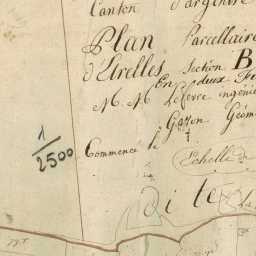 Canton d'argentré
Plan Parcellaire
d'Etrelles Section B
En deux Fe
M. M. Lefevre ingénie
Gazon Géom
Commencé le
1/2500
Echelle d
dite